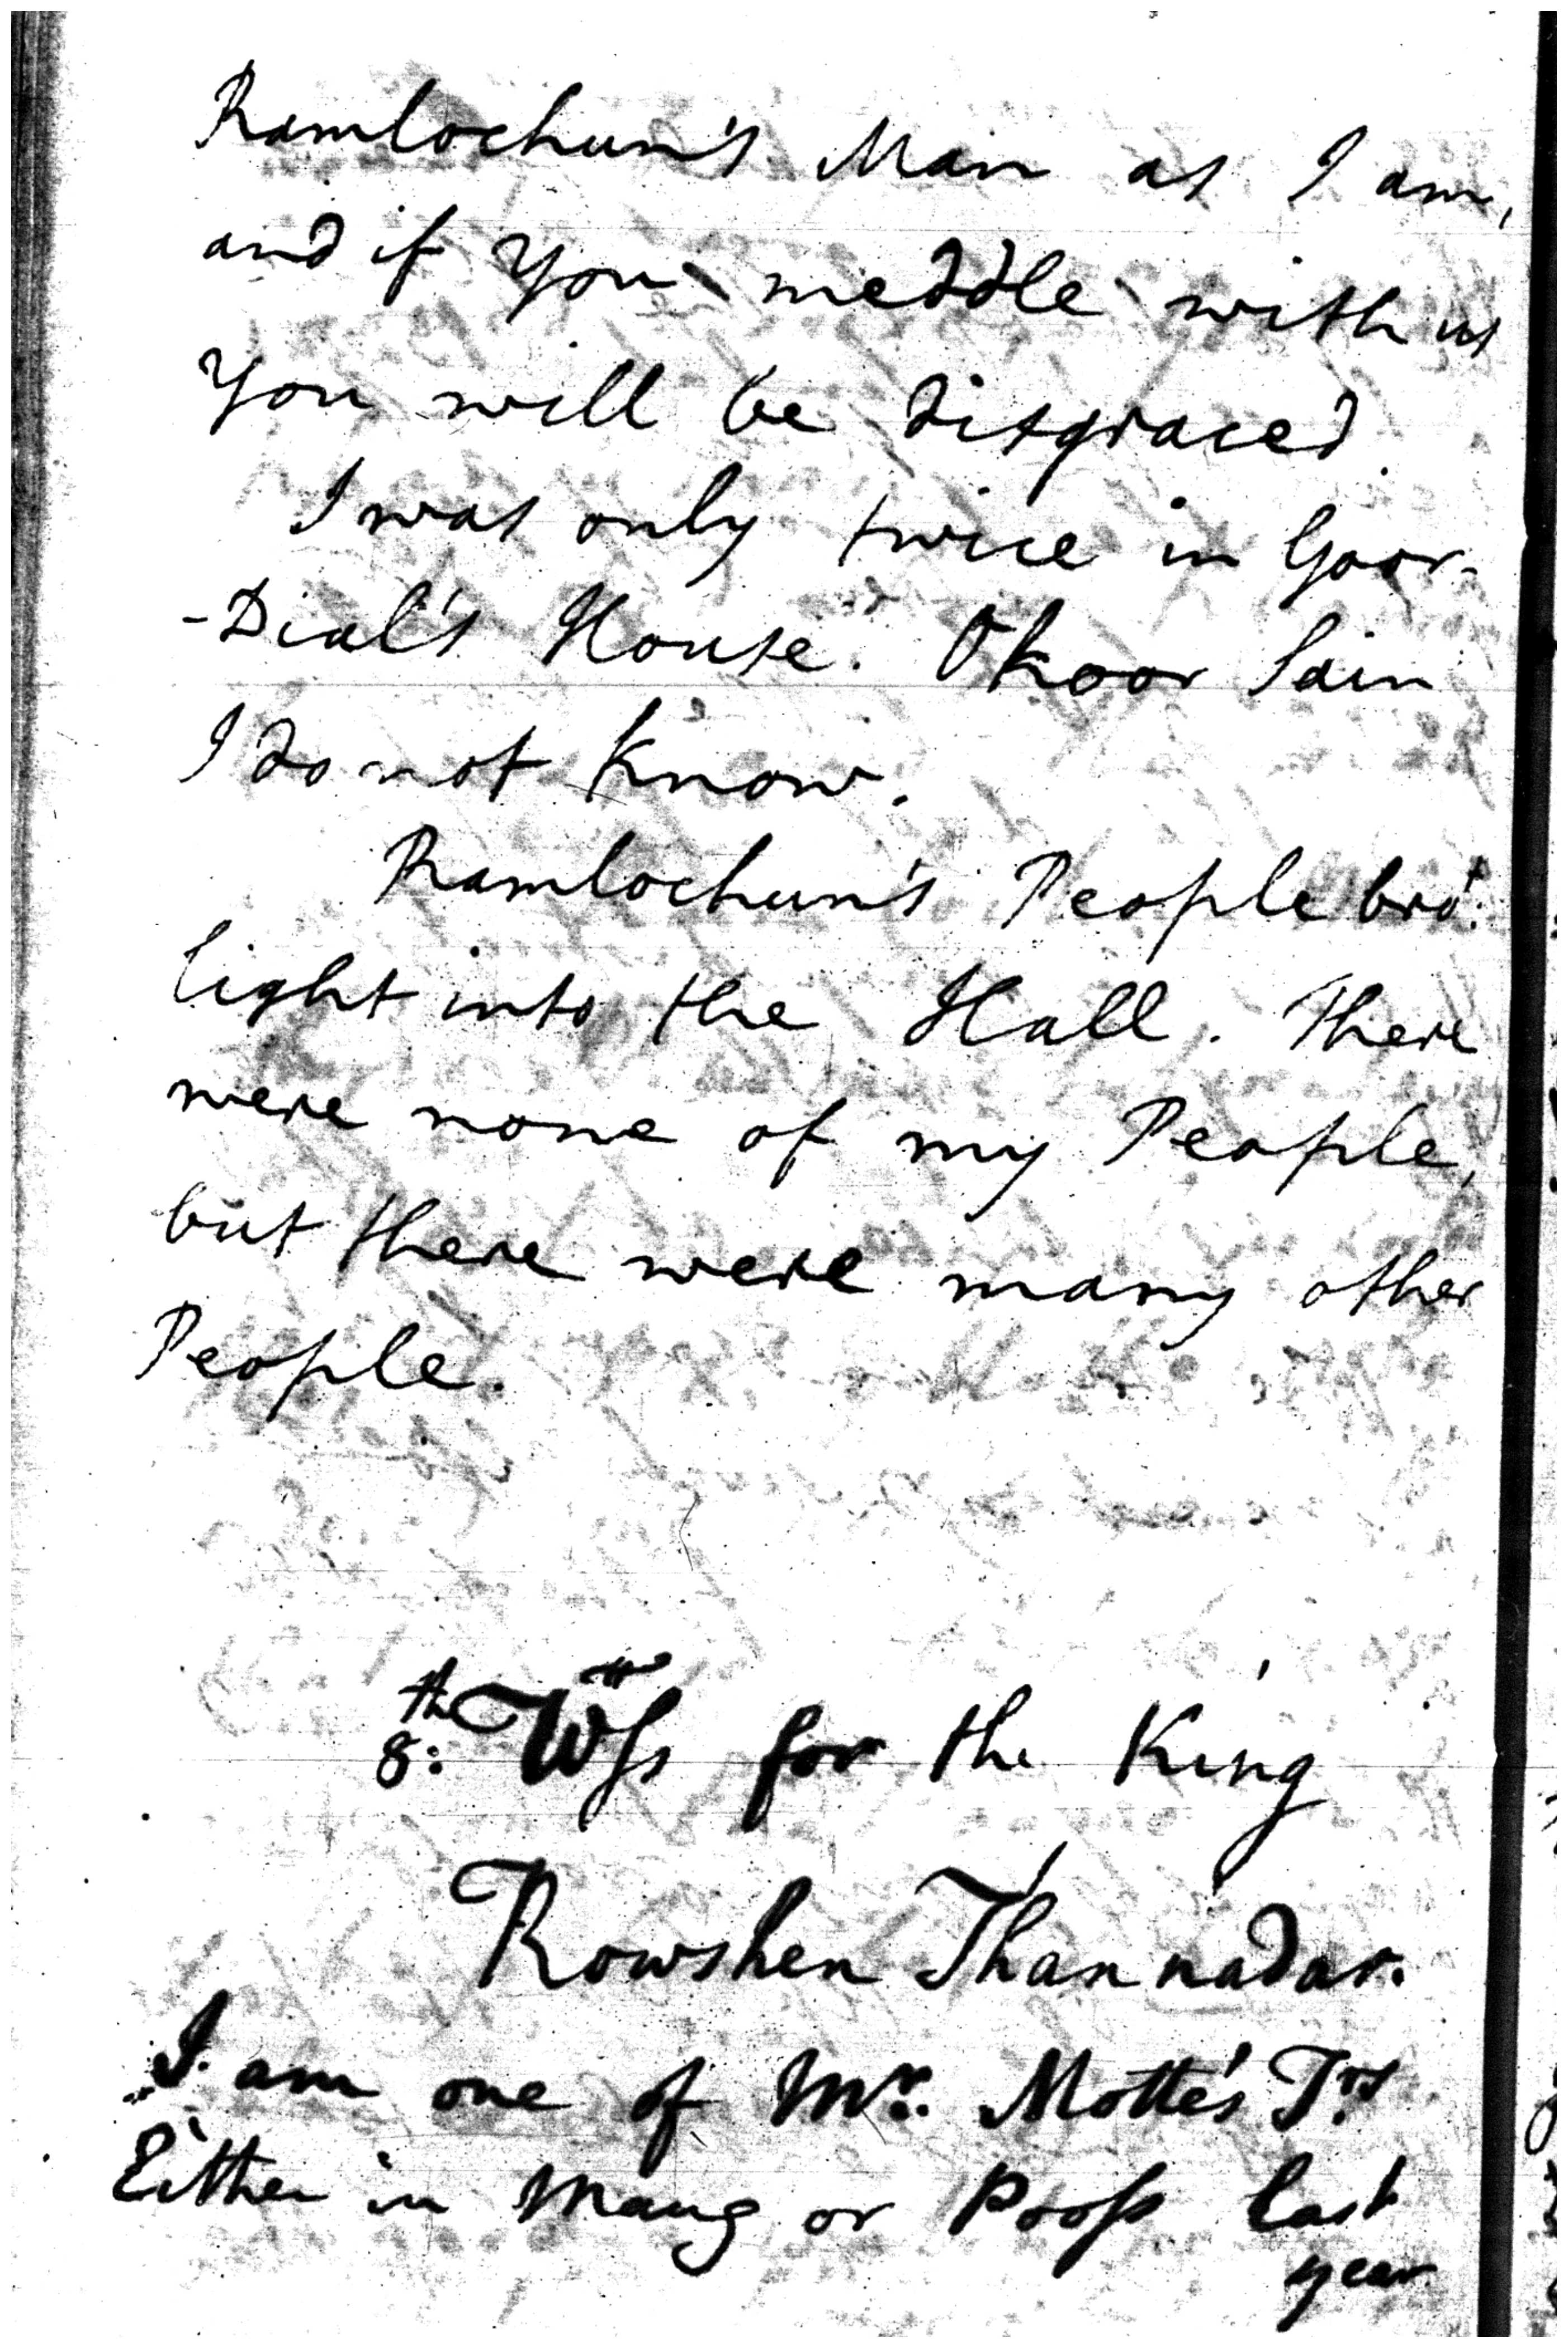 Ramlochun's Man as I am,
and if You meddle with us
You will be disgraced.
I was only twice in Goor-
-Dial's House. Okoor Sain
I do not Know.
Ramlochun's People bro:t
light into the Hall. There
were none of my People,
but there were many other
People.
8:th Wss for the King
Rowshen Thannadar.
I am one of Mr. Motte's Trs
Either in Maug or Pooss last
year